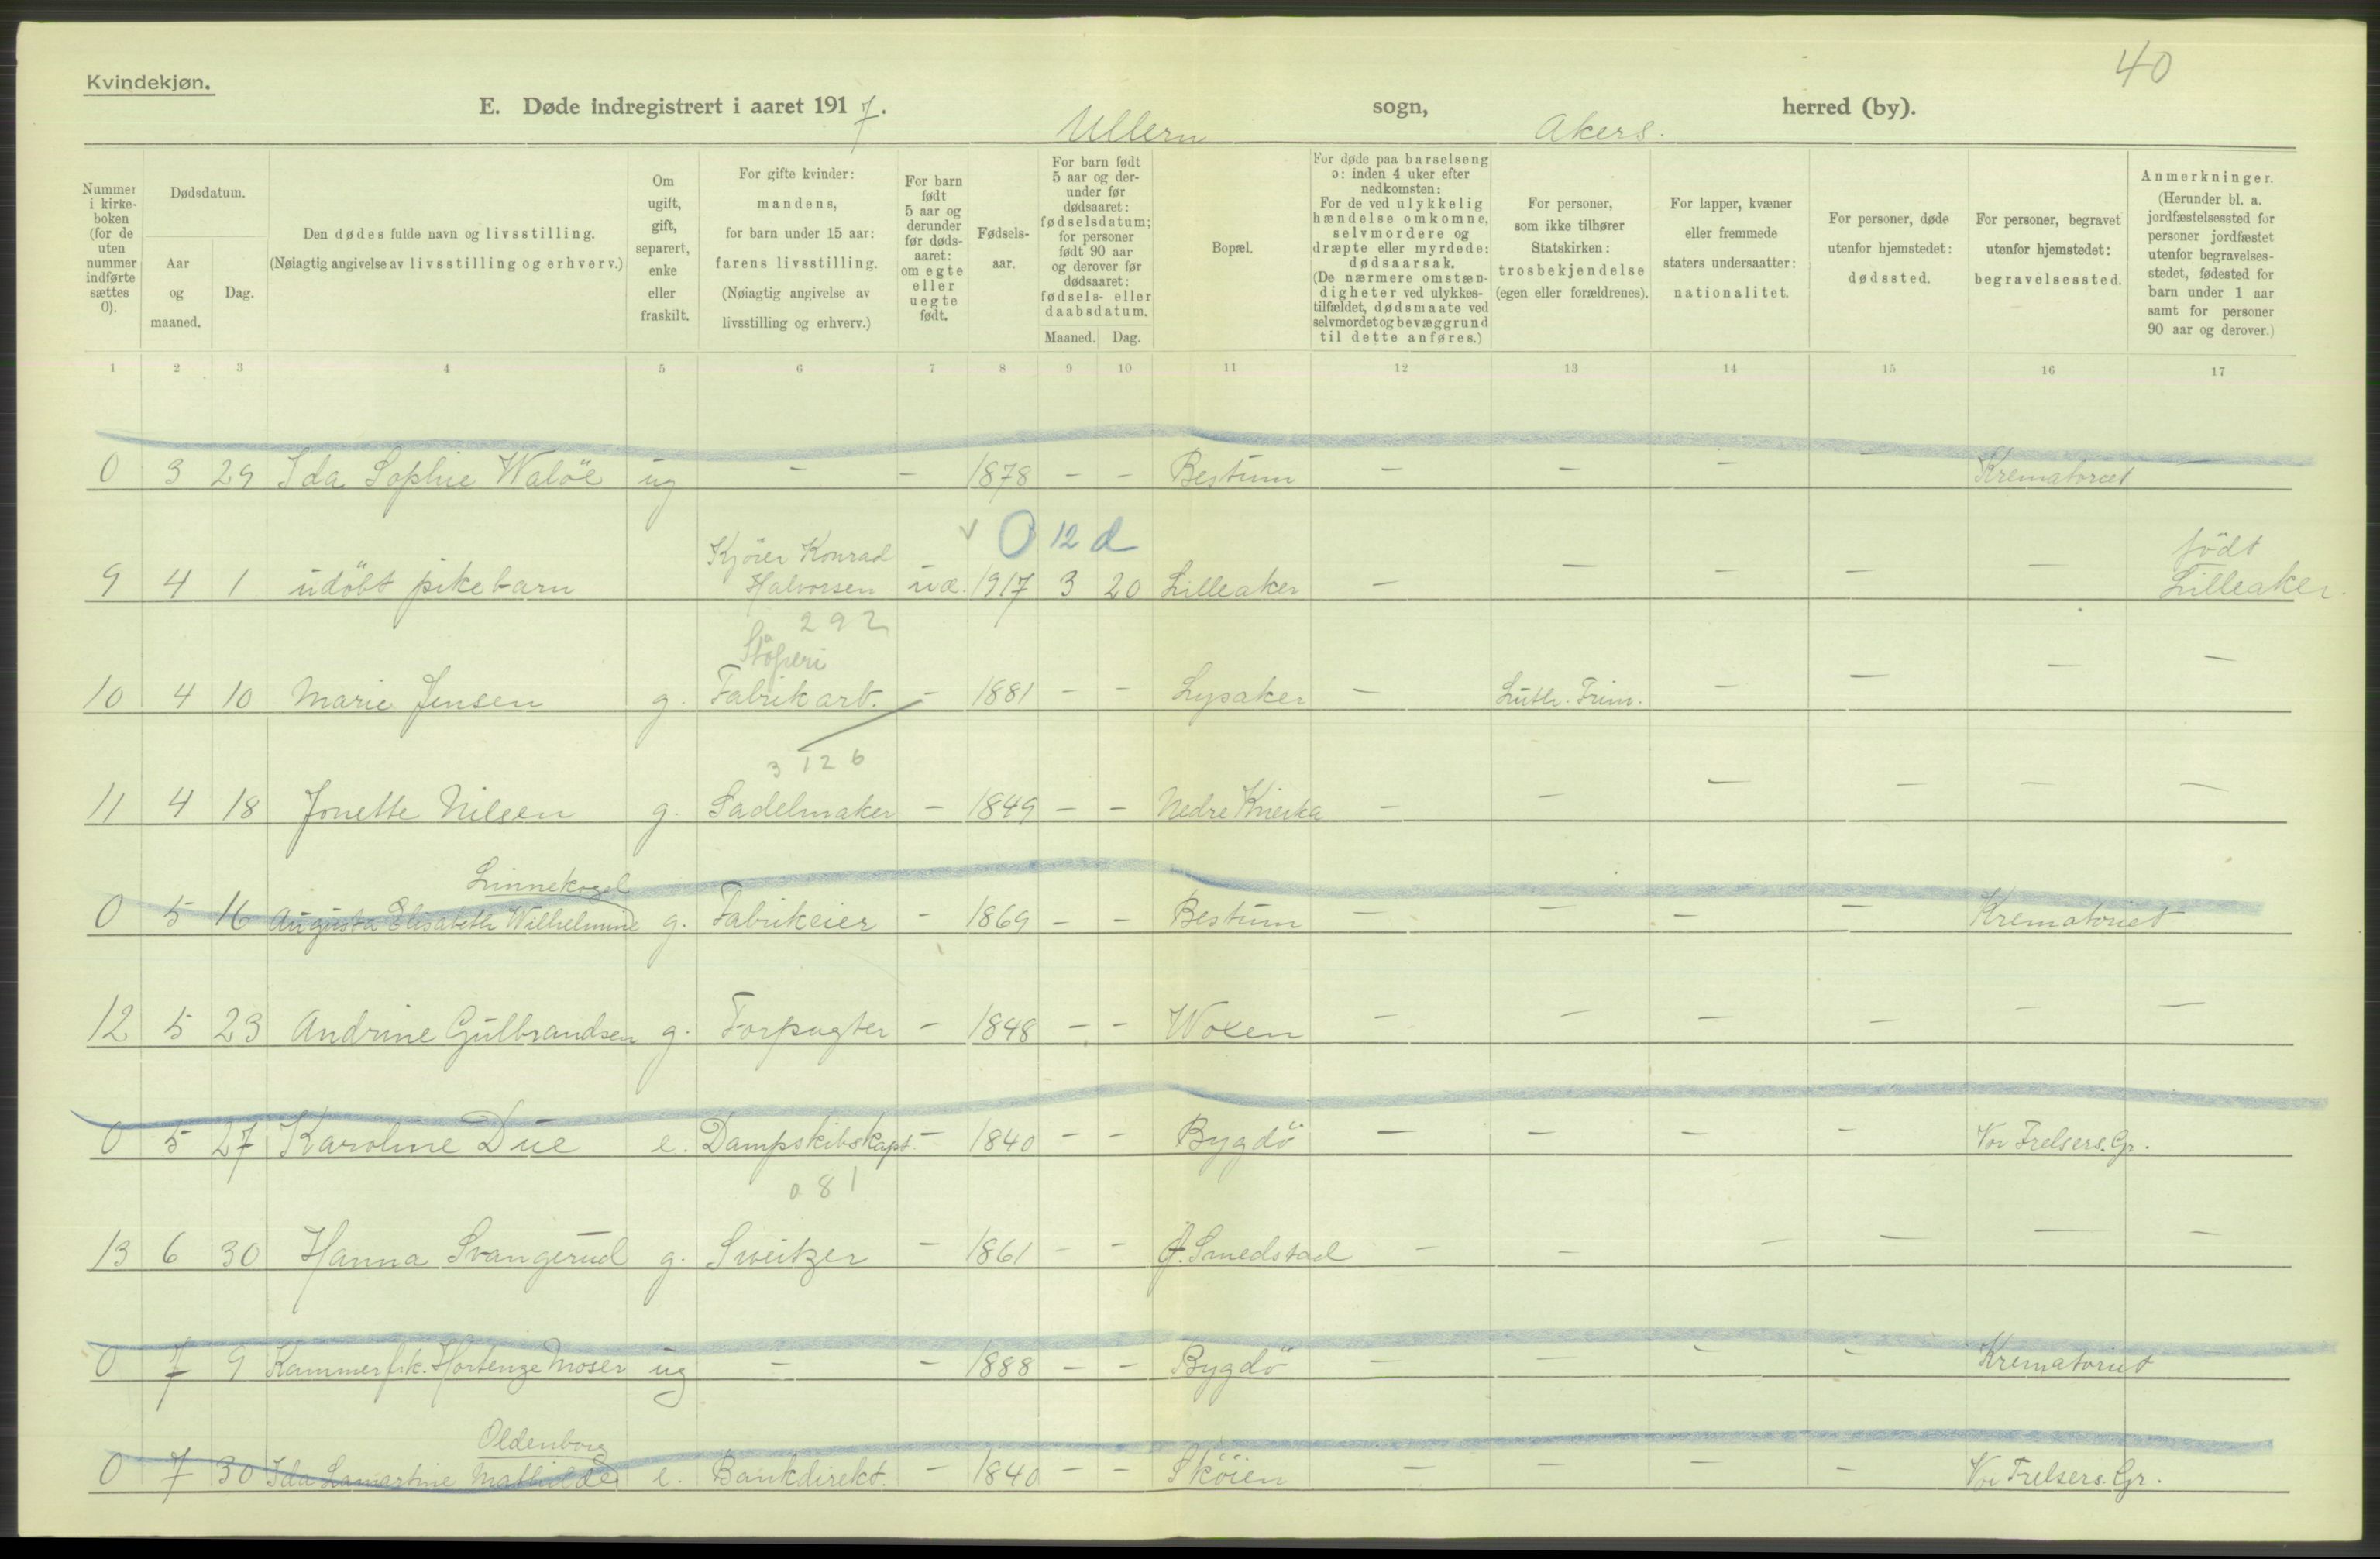 40
Kvindekjøn.
E. Døde indregistrert i aaret 1917. Ullern sogn, Akers. herred (by).
Nummer i kirkeboken (for de uten nummer indførte sættes 0).
Dødsdatum.
Aar og maaned.
Dag.
Den dødes fulde navn og livsstilling.
(Nøiagtig angivelse av livsstilling og erhverv.)
Om ugift, gift, separert, enke eller fraskilt.
For gifte kvinder: mandens, for barn under 15 aar: farens livsstilling. (Nøiagtig angivelse av livsstilling og erhverv.)
For barn født 5 aar og derunder før dødsaaret: om egte eller uegte født.
Fødselsaar.
For barn født 5 aar og derunder før dødsaaret: fødselsdatum; for personer født 90 aar og derover før dødsaaret: fødsels- eller daabsdatum.
Maaned. Dag.
Bopæl.
For døde paa barselseng ɔ: inden 4 uker efter nedkomsten: For de ved ulykkelig hændelse omkomne, selvmordere og dræpte eller myrdede: dødsaarsak. (De nærmere omstændigheter ved ulykkestilfældet, dødsmaate ved selvmordet og bevæggrund til dette anføres.)
For personer, som ikke tilhører Statskirken: trosbekjendelse (egen eller forældrenes).
For lapper, kvæner eller fremmede staters undersaatter: nationalitet.
For personer, døde utenfor hjemstedet: dødssted.
For personer, begravet utenfor hjemstedet: begravelsessted.
Anmerkninger. (Herunder bl. a. jordfæstelsessted for personer jordfæstet utenfor begravelsesstedet, fødested for barn under 1 aar samt for personer 90 aar og derover.)
1 2 3 4 5 6 7 8 9 10 11 12 13 14 15 16 17
0 3 29 Ida Sophie Waløe ug - - 1878 - - Bestum - - - - Krematoriet -
V 0 12 d
Kjører Konrad født
9 4 1 udøbt pikebarn Halvorsen uæ. 1917 3 20 Lilleaker - - - - - Lilleaker.
292
Støperi
10 4 10 Marie Jensen g. Fabrikarb. - 1881 - - Lysaker - Luth. Frim. - - - -
3 126
11 4 18 Jonette Nilsen g. Sadelmaker - 1849 - - Nedre - - - - - -
Linnekogel
0 5 16 Augusta Elisabeth Wilhelmine g. Fabrikeier - 1869 - - Bestum - - - - Krematoriet
12 5 23 Andrine Gulbrandsen g. Forpagter - 1848 - - Woxen - - - - - -
0 5 27 Karoline Due e. Dampskibskapt. - 1840 - - Bygdö - - - - Vor Frelsers. Gr.
081
13 6 30 Hanna Svangerud g. Sveitzer - 1861 - - Ø. Smedstad - - - - - -
0 7 9 Kammerfrk. Hortenze Moser ug - - 1888 - - Bygdö - - - - Krematoriet
Oldenborg
0 7 30 Ida Lamartine Mathilde e. Bankdirekt. - 1840 - - Sköien - - - - Vor Frelsers. Gr.